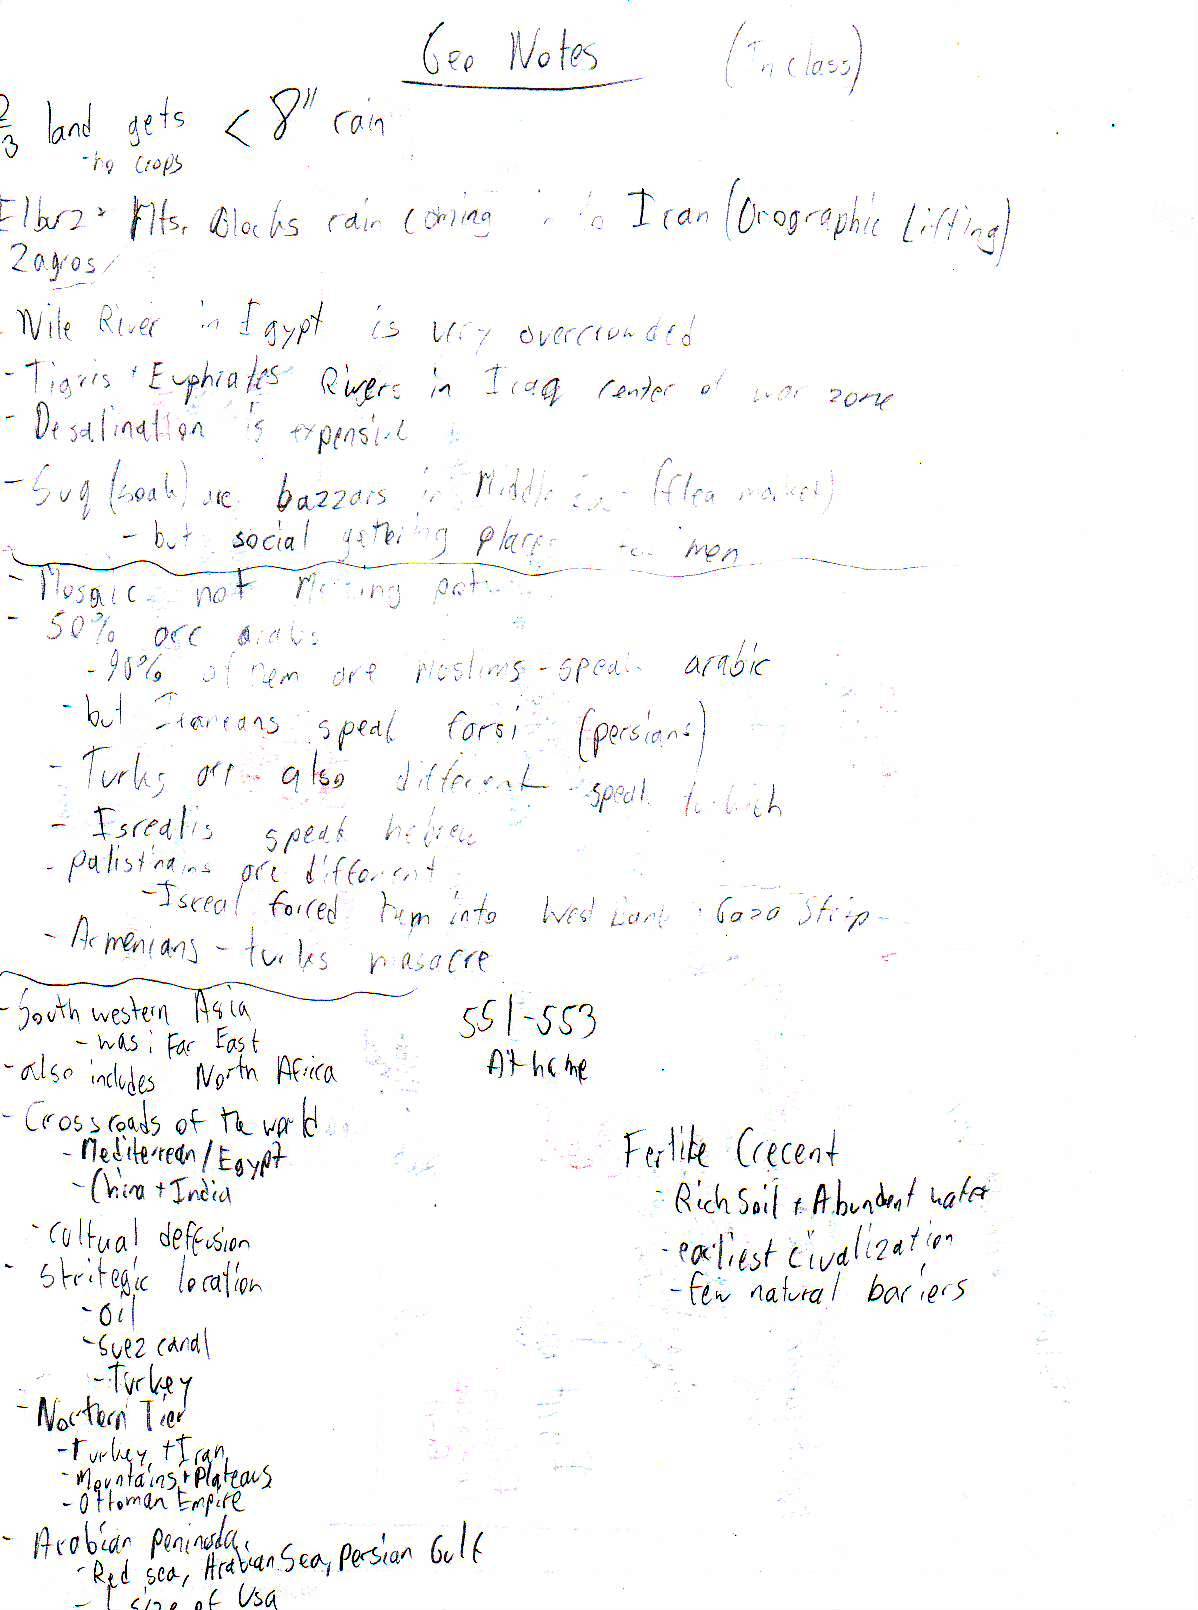 Geo Notes (In class)
2/3 land gets < 8" rain
-no crops
Elburz + Mts. Blocks rain coming into Iran (Orographic Lifting)
Zagros
- Nile River in Egypt is very overcrowded
- Tigris + Euphrates Rivers in Iraq center of war zone
- Desalination is expensive
- Suq (Souk) are bazzars in Middle (flea market)
- but social gathering places for men
- Mosaic not Melting pot
- 50% are arabs
- 90% of them are Moslims - speak arabic
- but Iraneans speak farsi (persians)
- Turks are also different - speak turkich
- Isrealis speak hebrew
- palistinains are different
- Isreal forced them into West Bank + Gaza Strip
- Armenians - turks masacre
- South western Asia
- was: Far East
- also includes North Africa
- Crossroads of the world
- Mediterrean/Egypt
- China + India
- cultual deffusion
- stritegic location
- Oil
- Suez canal
- Turkey
- Northern Tier
- Turkey + Iran
- Mountains + Plateaus
- Ottoman Empire
- Arabian peninsula
- Red sea, Arabian Sea, Persian Gulf
- size of Usa
551-553
At home
Fertile Crecent
- Rich Soil + Abundent water
- earliest civalization
- few natural bariers